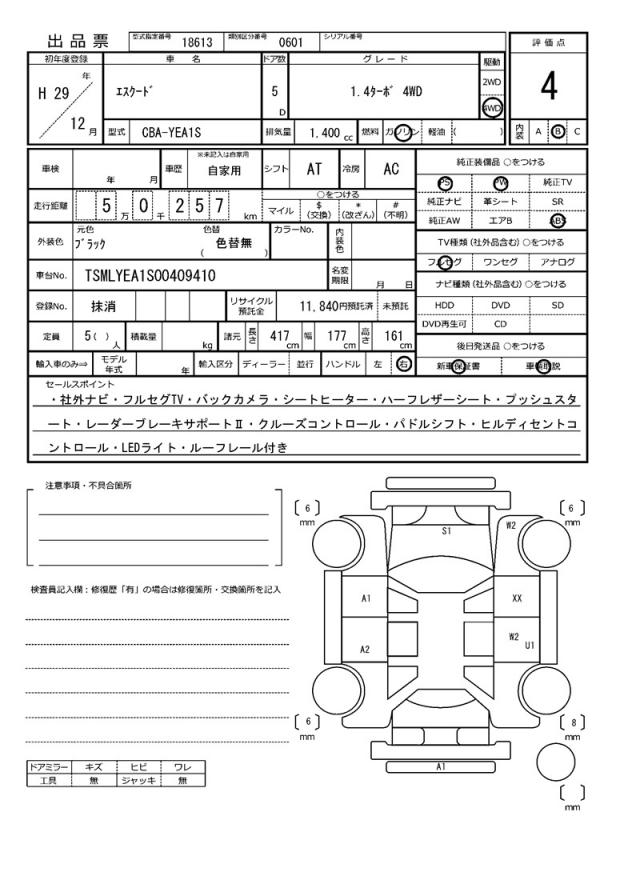 出品票 型式指定番号 18613 類別区分番号 0601 シリアル番号
評価点
初年度登録 車名 ドア数 グレード 駆動
H 29 年 エスクード 5 D 1.4ターボ 4WD 2WD 4WD 4
12 月 型式 CBA-YEA1S 排気量 1,400 cc 燃料 ガソリン 軽油 ( ) 内装 A B C
車検 年 月 車歴 ※未記入は自家用 自家用 シフト AT 冷房 AC 純正装備品 ○をつける
PS PW 純正TV
走行距離 5 万 0 千 2 5 7 km ○をつける マイル $ (交換) * (改ざん) # (不明) 純正ナビ 革シート SR
純正AW エアB ABS
外装色 元色 ブラック 色替 ( 色替無 ) カラーNo. 内装色 TV種類 (社外品含む) ○をつける
フルセグ ワンセグ アナログ
車台No. TSMLYEA1S00409410 名変期限 月 日 ナビ種類 (社外品含む) ○をつける
登録No. 抹消 リサイクル預託金 11,840円預託済 未預託 HDD DVD SD
DVD再生可 CD
定員 5( ) 人 積載量 kg 諸元 長さ 417 cm 幅 177 cm 高さ 161 cm 後日発送品 ○をつける
輸入車のみ⇒ モデル年式 年 輸入区分 ディーラー 並行 ハンドル 左 右 新車保証書 車輌取説
セールスポイント
・社外ナビ・フルセグTV・バックカメラ・シートヒーター・ハーフレザーシート・プッシュスタ
ート・レーダーブレーキサポートⅡ・クルーズコントロール・パドルシフト・ヒルディセントコ
ントロール・LEDライト・ルーフレール付き
注意事項・不具合箇所
検査員記入欄：修復歴「有」の場合は修復箇所・交換箇所を記入
[ 6 ] mm S1 W2 [ 6 ] mm
A1 XX
A2 W2 U1
[ 6 ] mm [ 8 ] mm
A1
[ ] mm
ドアミラー キズ ヒビ ワレ
工具 無 ジャッキ 無